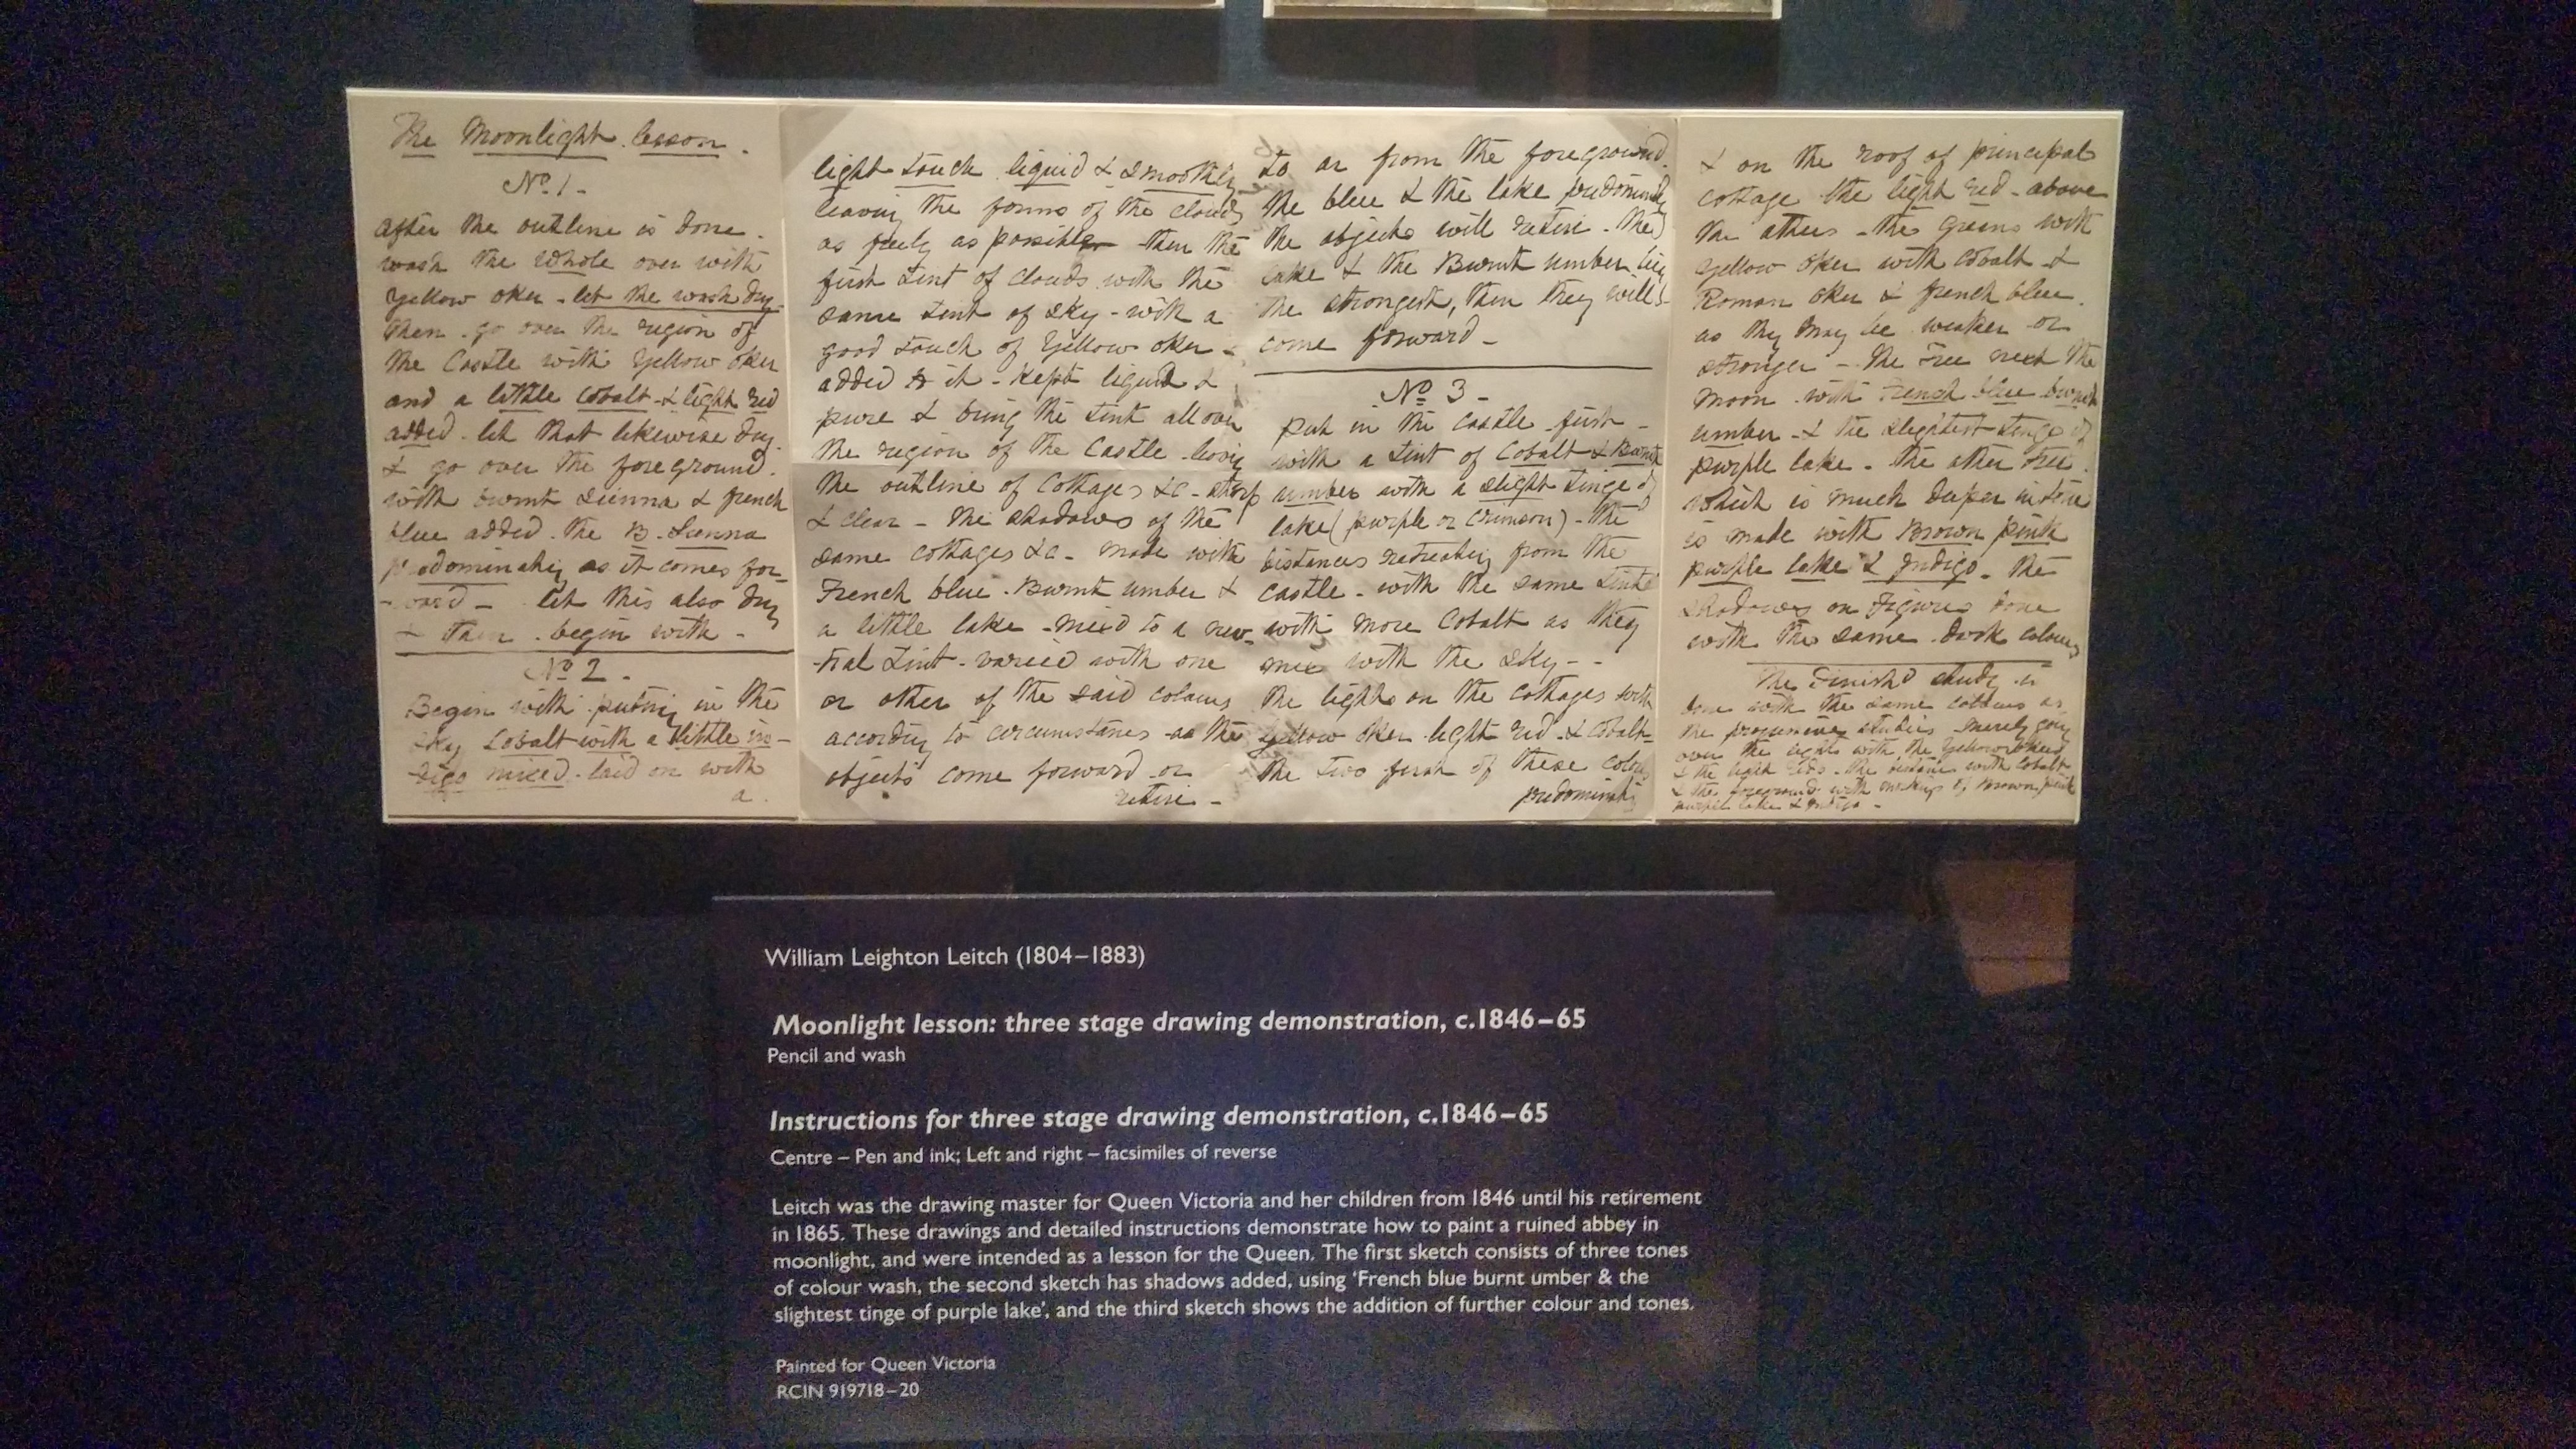 The Moonlight lesson.
No. 1 -
After the outline is done.
wash the whole over with
Yellow oker - let the wash dry.
then - go over the region of
the Castle with Yellow oker
and a little cobalt & light red
added. let that likewise dry
& go over the foreground.
with burnt sienna & french
blue added. the B. Sienna
predominating as it comes for-
-ward - let this also dry
& then - begin with -
No 2 -
Begin with puting in the
sky Cobalt with a little in-
-digo mixed. laid on with
a
light touch liquid & smoothly
leaving the forms of the clouds
as freely as possible - then the
first tint of clouds with the
same tint of sky - with a
good touch of Yellow oker -
added to it - kept liquid &
pure & bring the tint all over
the region of the Castle leaving
the outline of Cottages &c - sharp
& clear - the shadows of the
same cottages &c - made with
French blue. Burnt umber &
a little lake - mixd to a neu-
-tral tint - varied with one
or other of the said colours
according to circumstances - as the
objects come forward or
retire -
to or from the foreground.
the blue & the lake predominating
the objects will retire - the
lake & the Burnt umber being
the strongest, then they will
come forward -
No 3 -
put in the Castle first -
with a tint of Cobalt & Burnt
umber with a slight tinge of
lake (purple or crimson) - the
distances retreating from the
castle - with the same tint
with more Cobalt as they
mix with the sky - -
the lights on the cottages with
Yellow oker light red & Cobalt -
the two first of these colours
predominating
& on the roof of principal
cottage the light red - above
the others - the greens with
Yellow oker with Cobalt &
Roman oker & french blue.
as they may be weaker or
stronger - the Tree next the
moon - with French blue burnt
umber - & the slightest tinge of
purple lake. - the other Tree
which is much deeper in tone
is made with Brown pink
purple lake & Indigo. the
shadows on Figures done
with the same dark colours
The Finishd study is
done with the same colours as
the progressive studies - merely going
over the lights with the Yellow okers
& the light reds - the distance with Cobalt
& the foreground with markings of Brown pink
purple lake & Indigo -
William Leighton Leitch (1804–1883)
Moonlight lesson: three stage drawing demonstration, c.1846–65
Pencil and wash
Instructions for three stage drawing demonstration, c.1846–65
Centre – Pen and ink; Left and right – facsimiles of reverse
Leitch was the drawing master for Queen Victoria and her children from 1846 until his retirement
in 1865. These drawings and detailed instructions demonstrate how to paint a ruined abbey in
moonlight, and were intended as a lesson for the Queen. The first sketch consists of three tones
of colour wash, the second sketch has shadows added, using 'French blue burnt umber & the
slightest tinge of purple lake', and the third sketch shows the addition of further colour and tones.
Painted for Queen Victoria
RCIN 919718–20